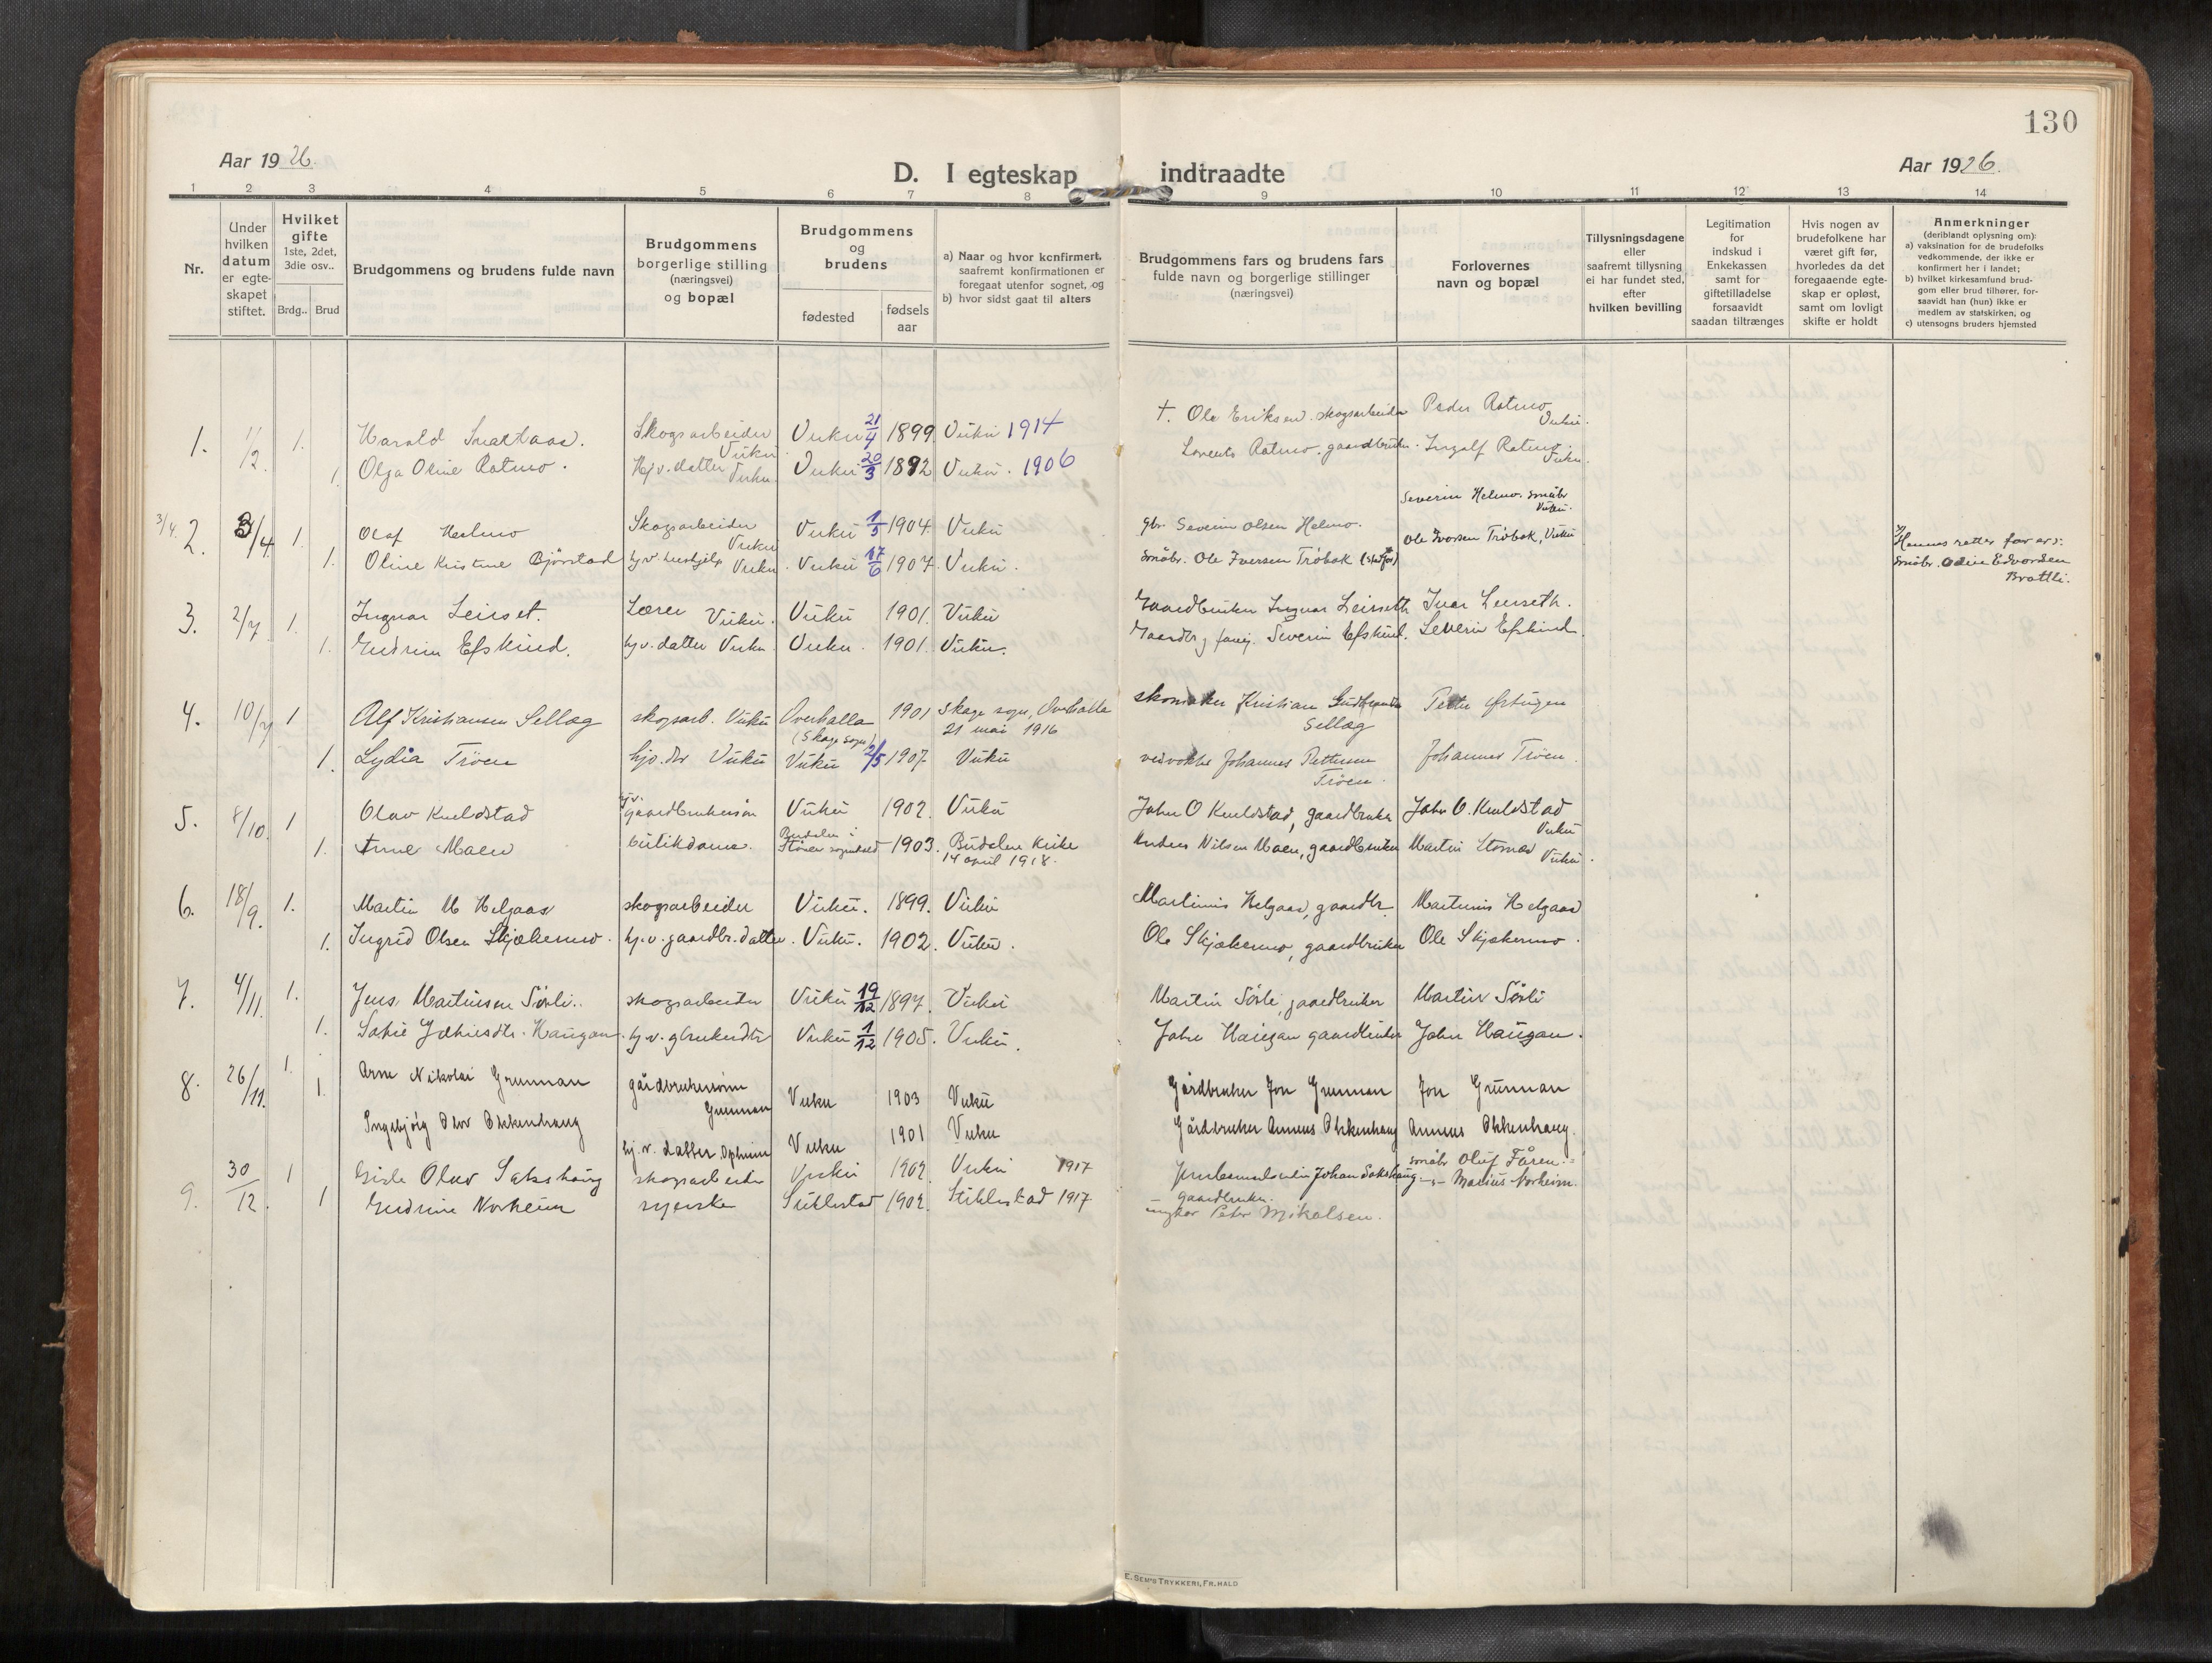 130
Aar 1926.
D. I egteskap indtraadte
Aar 1926.
1 2 3 4 5 6 7 8 9 10 11 12 13 14
Nr.
Under hvilken datum er egte-skapet stiftet.
Hvilket gifte
1ste, 2det, 3die osv..
Brdg.. Brud
Brudgommens og brudens fulde navn
Brudgommens borgerlige stilling (næringsvei) og bopæl
Brudgommens og brudens
fødested
fødsels aar
a) Naar og hvor konfirmert, saafremt konfirmationen er foregaat utenfor sognet, og
b) hvor sidst gaat til alters
Brudgommens fars og brudens fars fulde navn og borgerlige stillinger (næringsvei)
Forlovernes navn og bopæl
Tillysningsdagene eller saafremt tillysning ei har fundet sted, efter hvilken bevilling
Legitimation for indskud i Enkekassen samt for giftetilladelse forsaavidt saadan tiltrænges
Hvis nogen av brudefolkene har været gift før, hvorledes da det foregaaende egte-skap er opløst, samt om lovligt skifte er holdt
Anmerkninger
(deriblandt oplysning om):
a) vaksination for de brudefolks vedkommende, der ikke er konfirmert her i landet;
b) hvilket kirkesamfund brud-gom eller brud tilhører, for-saavidt han (hun) ikke er medlem av statskirken, og
c) utensogns bruders hjemsted
1. 1/2. 1. Harald Snaasaas. Skogsarbeider Vuku Vuku 21/4 1899 Vuku 1914 †. Ole Eriksen. skogsarbeider Peder Ratmo Vuku.
1. Olga Oline Ratmo. Hj.v. datter Vuku. Vuku 20/3 1892 Vuku. 1906 Lorents Ratmo. gaardbruker. Ingolf Ratmo. Vuku.
3/4. 2. 3/4. 1. Olaf Helmo Skogsarbeider Vuku Vuku 1/5 1904. Vuku gbr. Severin Olsen Helmo. Severin Helmo. småbr Vuku.
1. Oline Kristine Bjørstad hj.v. Vuku. Vuku 17/6 1907. Vuku. Småbr. Ole Iversen Trøbak (stedfar) Ole Ivarsen Trøbak, Vuku
Hennes retter far er: småbr. Odin Edvardsen Brattli.
3. 2/7. 1. Ingvar Leirset. Lærer Vuku. Vuku 1901. Vuku Gaardbruker Ingvar Leirseth Ivar Leirseth.
1. Gudrun Efskind. hj.v. datter Vuku. Vuku. 1901. Vuku. Gaardbr. Severin Efskind. Severin Efskind.
4. 10/7 1 Alf Kristiansen Sellæg skogsarb. Vuku Overhalla (Skage sogn) 1901 Skage sogn, Overhalla 21 mai 1916 skomaker Kristian Sellæg Petter Østingen
1. Lydia Trøen hjv. dtr Vuku Vuku 2/5 1907 Vuku Johannes Pettersen Trøen. Johannes Trøen.
5. 8/10. 1 Olav Kveldstad gaardbrukersøn Vuku 1902. Vuku John O Kveldstad, gaardbruker John O. Kveldstad Vuku
1. Anne Moen butikdame. Budalen i Støren sognekald 1903. Budalen Kirke 14 april 1918. Anders Nilsen Moen, gaardbruker Martin Stornæs Vuku.
6. 18/9. 1. Martin M Helgaas skogsarbeider Vuku. 1899. Vuku Martinus Helgaas, gaardbr. Martinus Helgaas
1. Ingrid Olsen Skjækermo. hj.v. gaardbr. datter. Vuku. 1902. Vuku. Ole Skjækermo, gaardbruker Ole Skjækermo.
7. 4/11. 1. Jens Martinsen Sørli.. skogsarbeider Vuku 19/12 1897. Vuku Martin Sørli, gaardbruker Martin Sørli
1. Sofie Johnsdtr. Haugan. hj.v. gbrukerdtr Vuku 1/12 1905. Vuku. John Haugan gaardbruker John Haugan.
8. 26/11. 1. Arne Nikolai Grunnan gårdbrukersønn Grunnan Vuku 1903 Vuku Gårdbruker Jon Grunnan Jon Grunnan
1. Ingebjørg Okkenhaug hj.v. datter Vuku 1901 Vuku Gårdbruker Annæus Okkenhaug Annæus Okkenhaug.
9. 30/12. 1 Gisle Olav Sakshaug skogsarbeider Vuku 1902. Vuku 1917 Johan Sakshaug småbr Oluf Fåren.
1 Gudrun Norheim syerske Stiklestad 1902. Stiklestad 1917 gaardbruker. Peter Mikalsen. Marius Norheim.
E. SEM'S TRYKKERI, FR.HALD